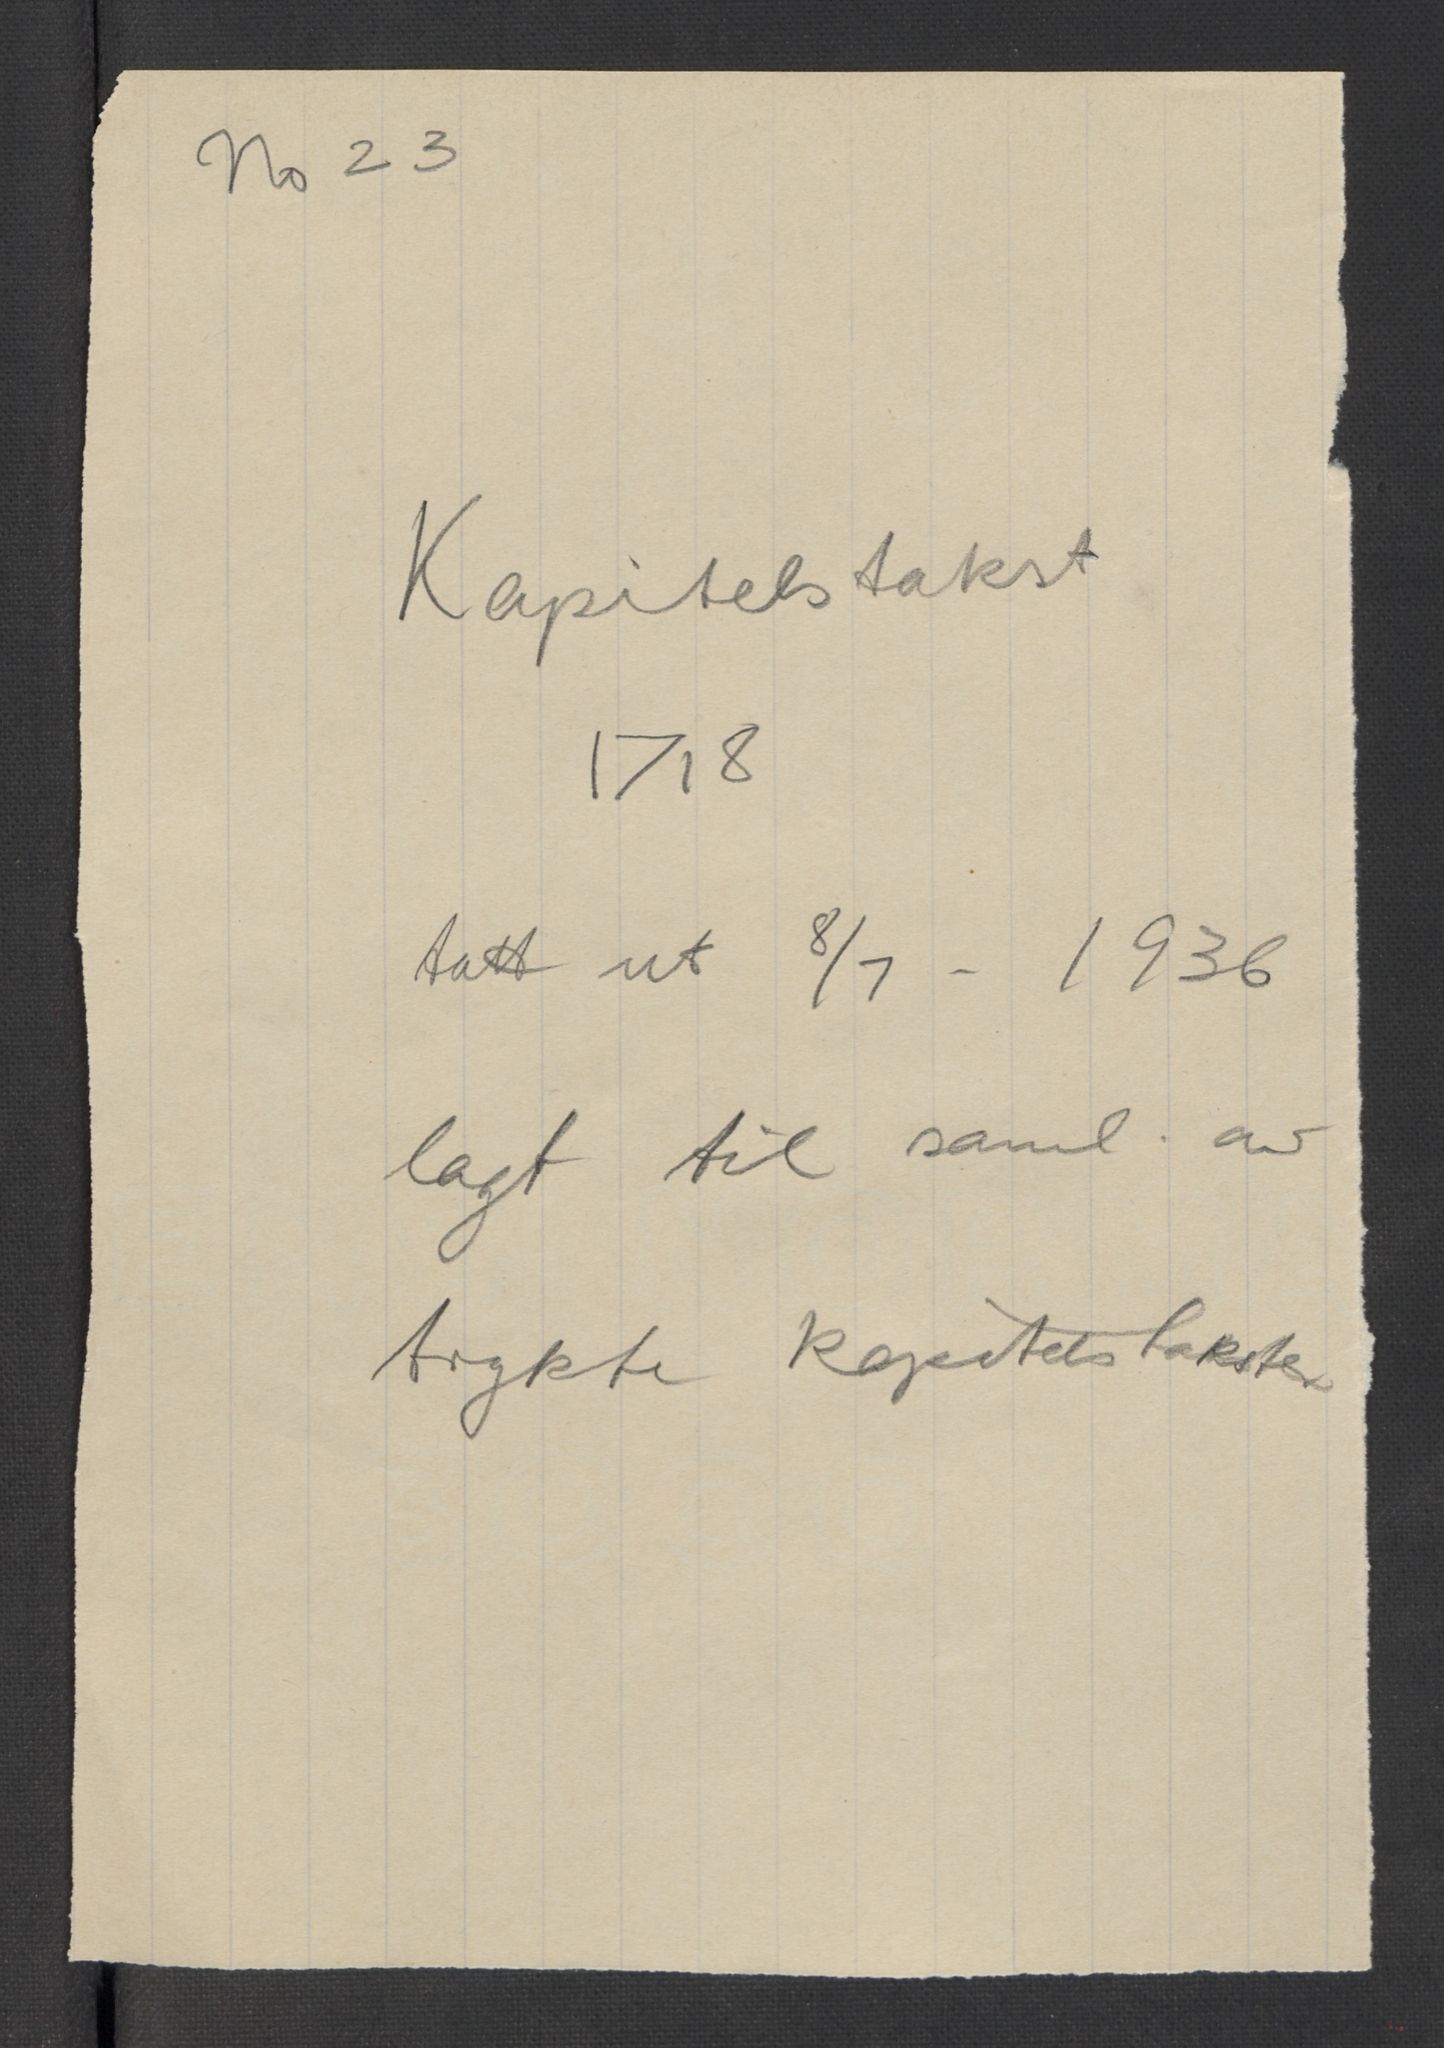 No 23
Kapitelstakst
1718
tatt ut 8/7 - 1936
lagt til saml. av
trykte kapitelstakster